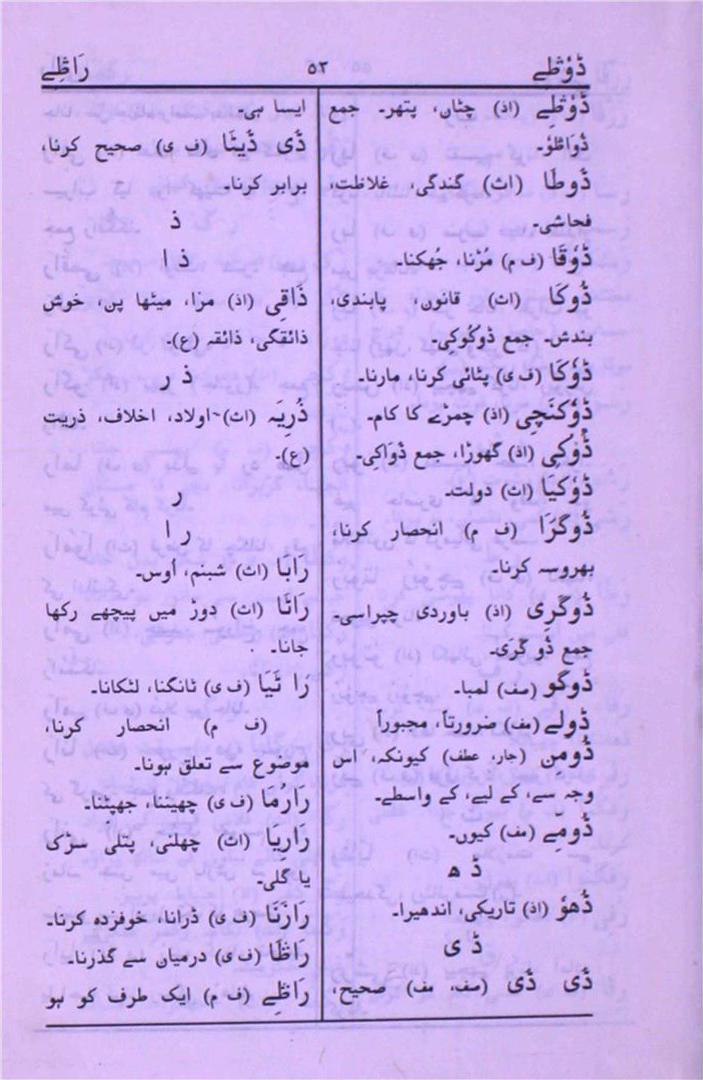 ڈوٹلے ۵۲ راظلے
ڈوٹلے (اذ) چٹان، پتھر۔ جمع
ڈواٹلو۔
ڈوطا (اث) گندگی، غلاظت،
فحاشی۔
ڈوقا (ف م) مڑنا، جھکنا۔
ڈوکا (اث) قانون، پابندی،
بندش۔ جمع ڈوکوکی۔
ڈوکا (ف ی) پٹائی کرنا، مارنا۔
ڈوکنچی (اذ) چمڑے کا کام۔
ڈوکی (اذ) گھوڑا، جمع ڈواکی۔
ڈوکیا (اث) دولت۔
ڈوگرا (ف م) انحصار کرنا،
بھروسہ کرنا۔
ڈوگری (اذ) باوردی چپراسی۔
جمع ڈو گری۔
ڈوگو (مف) لمبا۔
ڈولے (مف) ضرورتاً، مجبوراً
ڈومن (جار، عطف) کیونکہ، اس
وجہ سے، کے لیے، کے واسطے۔
ڈومے (مف) کیوں۔
ڈ ھ
ڈھو (اذ) تاریکی، اندھیرا۔
ڈ ی
ڈی ڈی (مف، مف) صحیح،
ایسا ہی۔
ڈی ڈیتا (ف ی) صحیح کرنا،
برابر کرنا۔
ذ
ذ ا
ذاقی (اذ) مزا، میٹھا پن، خوش
ذائقگی، ذائقہ (ع)۔
ذ ر
ذریہ (اث) اولاد، اخلاف، ذریت
(ع)۔
ر
ر ا
رابا (اث) شبنم، اوس۔
راتا (اث) دوڑ میں پیچھے رکھا
جانا۔
را تیا (ف ی) ٹانگنا، لٹکانا۔
(ف م) انحصار کرنا،
موضوع سے تعلق ہونا۔
رارما (ف ی) چھیننا، جھپٹنا۔
راریا (اث) چھلنی، پتلی سڑک
یا گلی۔
رازنا (ف ی) ڈرانا، خوفزدہ کرنا۔
راظا (ف ی) درمیان سے گذرنا۔
راظے (ف م) ایک طرف کو ہو